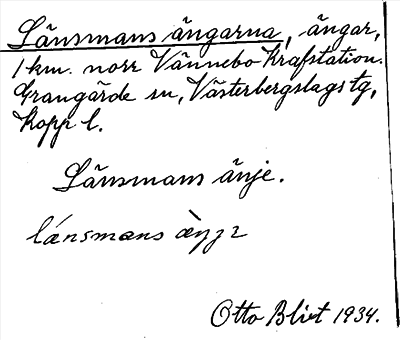 Länsmans ängarna, ängar,
1 km. norr Vännebo Krafstation.
Grangärde sn, Västerbergslags tg,
Kopp l.
Länsmans änje.
lánsmans
Otto Blixt 1934.